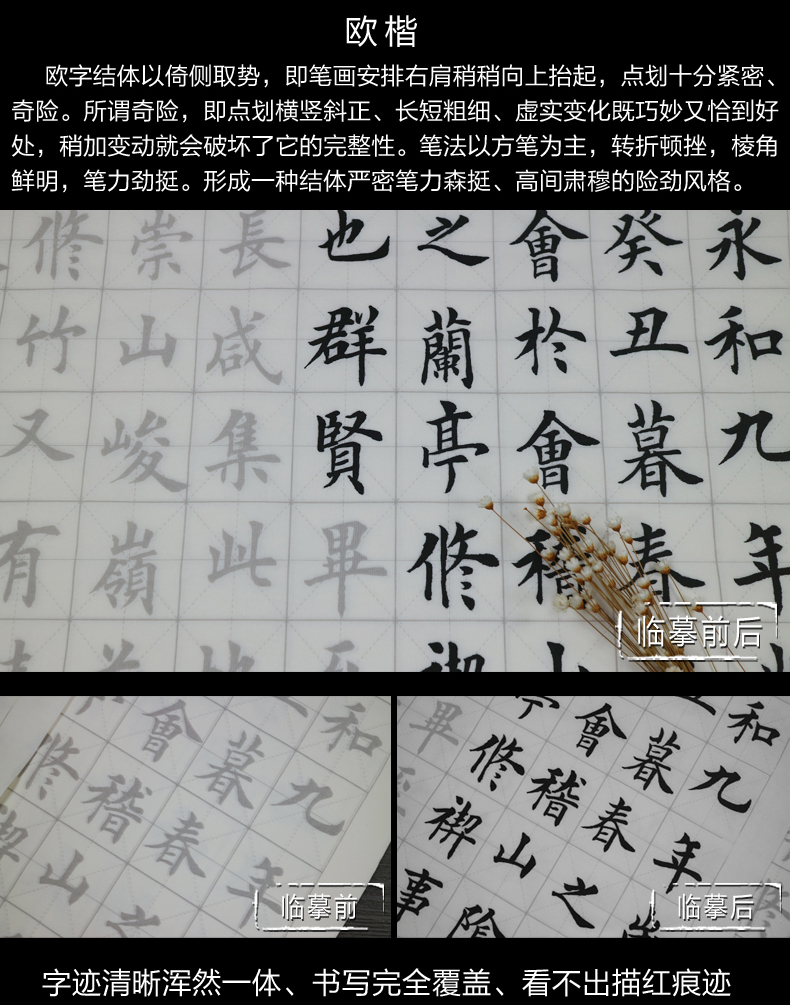 欧楷
欧字结体以倚侧取势，即笔画安排右肩稍稍向上抬起，点划十分紧密、
奇险。所谓奇险，即点划横竖斜正、长短粗细、虚实变化既巧妙又恰到好
处，稍加变动就会破坏了它的完整性。笔法以方笔为主，转折顿挫，棱角
鲜明，笔力劲挺。形成一种结体严密笔力森挺、高间肃穆的险劲风格。
永和九年
癸丑暮春
會於會稽山
之蘭亭修禊
也群賢畢
長咸集此地
崇山峻嶺
修竹又有
临摹前后
和九年
暮春之
會稽山
修禊
临摹前
和九年
暮春之
會稽山陰
亭修禊事
畢
临摹后
字迹清晰浑然一体、书写完全覆盖、看不出描红痕迹